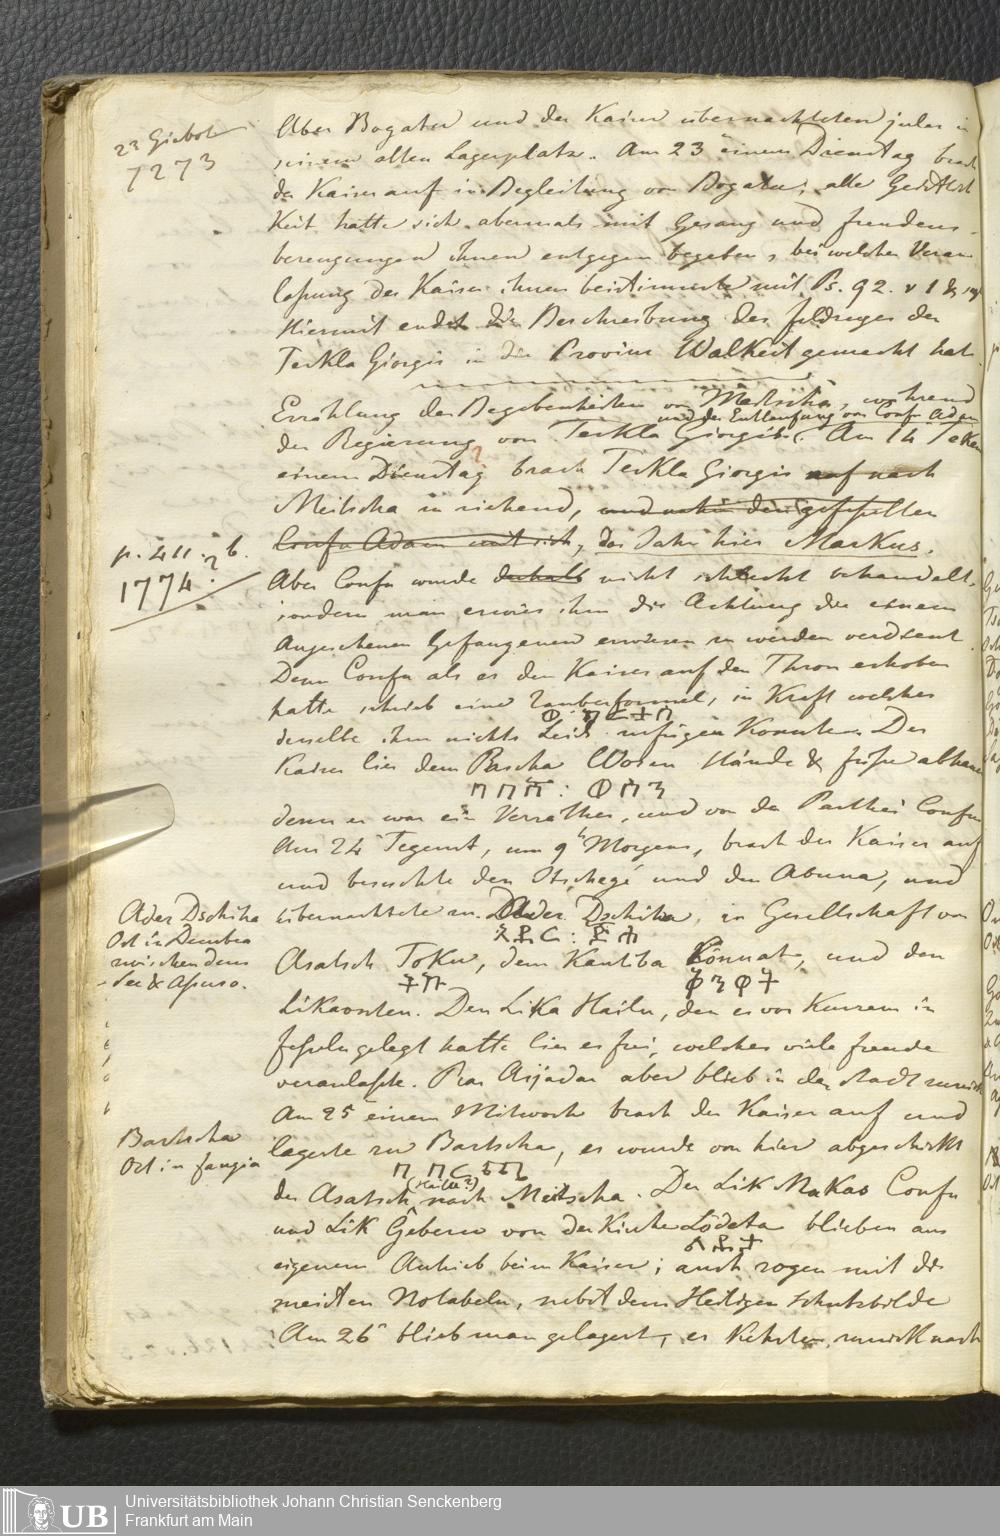 23 Giebot
1773
Aber Bogater und der Kaiser übernachteten jeder in
seinem alten Lagerplatz. Am 23 einem Dienstag brach
der Kaiser auf in Begleitung von Bogater; alle Geistlich
Keit hatte sich abermals mit Gesang und freudens-
bezeugungen ihnen entgegen begeben, bei welcher Veran
laßung der Kaiser ihnen beistimmte mit Ps. 92. v 1 &
Hiermit endet die Beschreibung des feldzuges den
Teekla Giorgis in die Provinz Walkeit gemacht hat
Erzählung der Begebenheiten von Meitscha, während
und der Entlaufung von Confu Adam
der Regierung von Teekla Giorgis. Am 14 Teken
einem Dienstag ? brach Teekla Giorgis auf nach
Meitscha zu ziehend, und nahm den gefeßelten
p. 411. b.
Confu Adam mit sich, das Jahr hies Markus.
1774 ?
Aber Confu wurde deshalb nicht schlecht behandelt,
sondern man erwies ihm die Achtung die einem
Angesehenen Gefangenen erwiesen zu werden verdient.
Denn Confu als er den Kaiser auf den Thron erhoben
hatte schrieb eine Zauberformel, in Kraft welcher
derselbe ihm nichts Leids zufügen Konnte. Der
Kaiser lies dem Bascha Woren Hände & füße abhauen
denn er war ein Verräther, und von der Parthei Confu
Am 24 Tegemt, um 9 h Morgens, brach der Kaiser auf
und besuchte den Etschegé und den Abuna, und
Ader Dschiha
Ort in Dembea
zwischen dem
See & Aßuso.
übernachtete zu Ader Dschiha, in Gesellschaft von
Asatsch Toku, dem Kantiba Könnat, und den
Likaonten. Den Lika Hailu, den er vor Kurzem in
feßeln gelegt hatte lies er frei, welches viele freude
veranlaßte. Ras Aijadar aber blieb in der Stadt zurück
Am 25 einem Mitwoch brach der Kaiser auf und
Bartscha
Ort in fangia
lagerte zu Bartscha, es wurde von hier abgeschickt
በ በርጫ
(Hailu?)
der Asatsch nach Meitscha. Der Lik Makas Confu
und Lik Gebern von der Kirche Lödeta blieben aus
ልደታ
eigenem Antrieb beim Kaiser; auch zogen mit die
meisten Notabeln, nebst dem Heiligen Schutzbilde
Am 26 blieb man gelagert, es Kehrten zurück nach
UB
Universitätsbibliothek Johann Christian Senckenberg
Frankfurt am Main